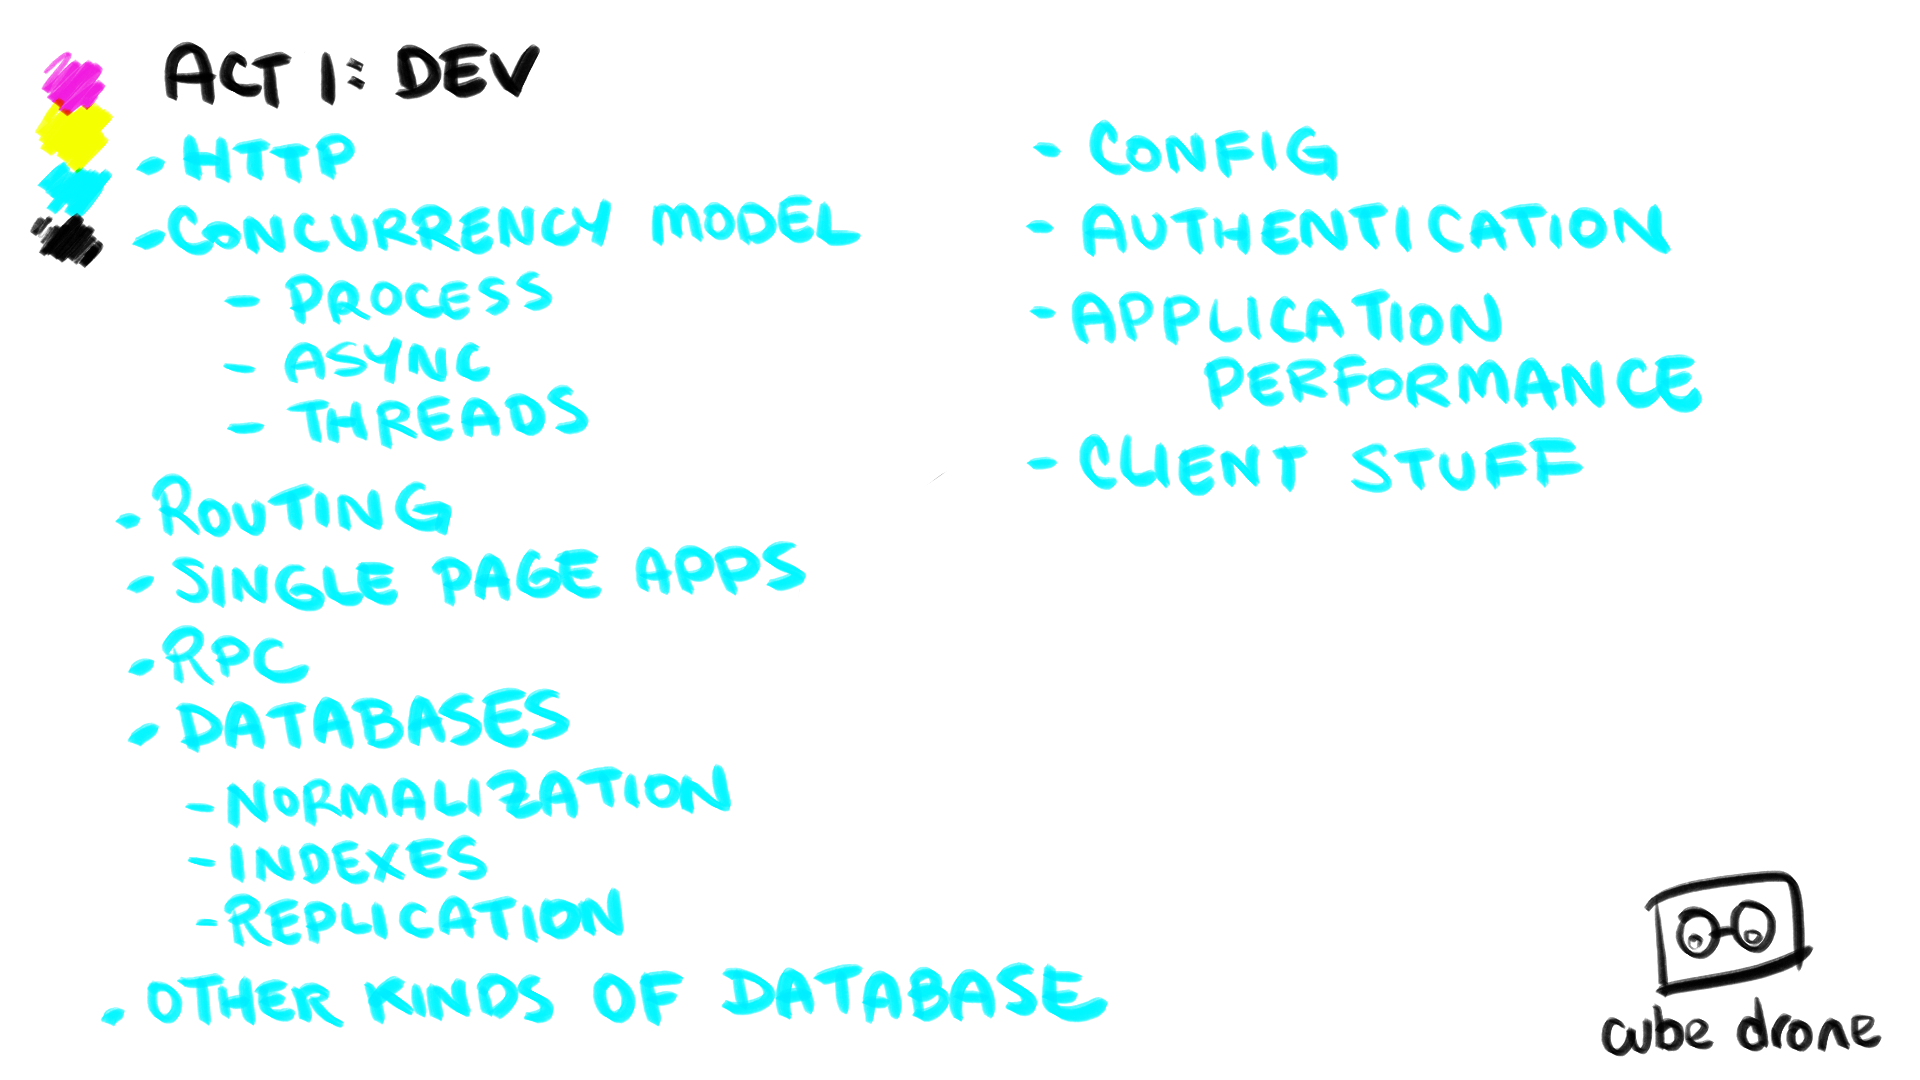 ACT 1: DEV
- HTTP
- CONCURRENCY MODEL
- PROCESS
- ASYNC
- THREADS
- ROUTING
- SINGLE PAGE APPS
- RPC
- DATABASES
- NORMALIZATION
- INDEXES
- REPLICATION
- OTHER KINDS OF DATABASE
- CONFIG
- AUTHENTICATION
- APPLICATION
PERFORMANCE
- CLIENT STUFF
cube drone